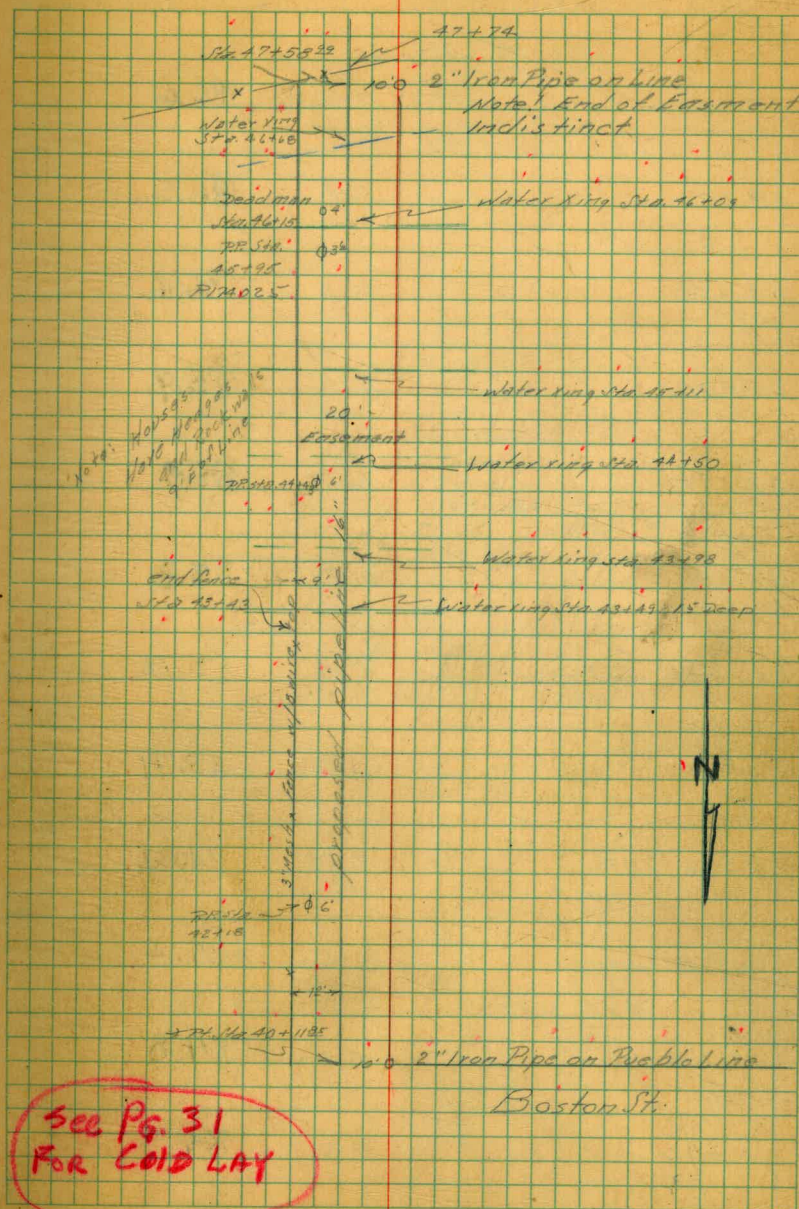 47+74
Sta. 47+58 22
10' 2" Iron Pipe on Line
Note! End of Easment
Indistinct
Water Xing
Sta. 46+68
Deadman
Sta. 46+15
04'
Water Xing Sta. 46+09
P.P. Sta.
45+95
P174025
Water Xing Sta. 45+11
Note: Houses
Have Hedges
and Rock walls
Line
20'
Easement
Water Xing Sta. 44+50
P.P. Sta. 44+
6'
16"
Water Xing Sta. 43+98
end fence
Sta 43+43
9'
Water Xing Sta. 43+49 1.5' Deep
3" Mesh Fence w/
proposed pipeline
N
P.P. Sta
42+18
6'
12'
Pt. Sta. 40+11 85
10' 2" Iron Pipe on Pueblo Line
Boston St.
See PG. 31
FOR COLD LAY